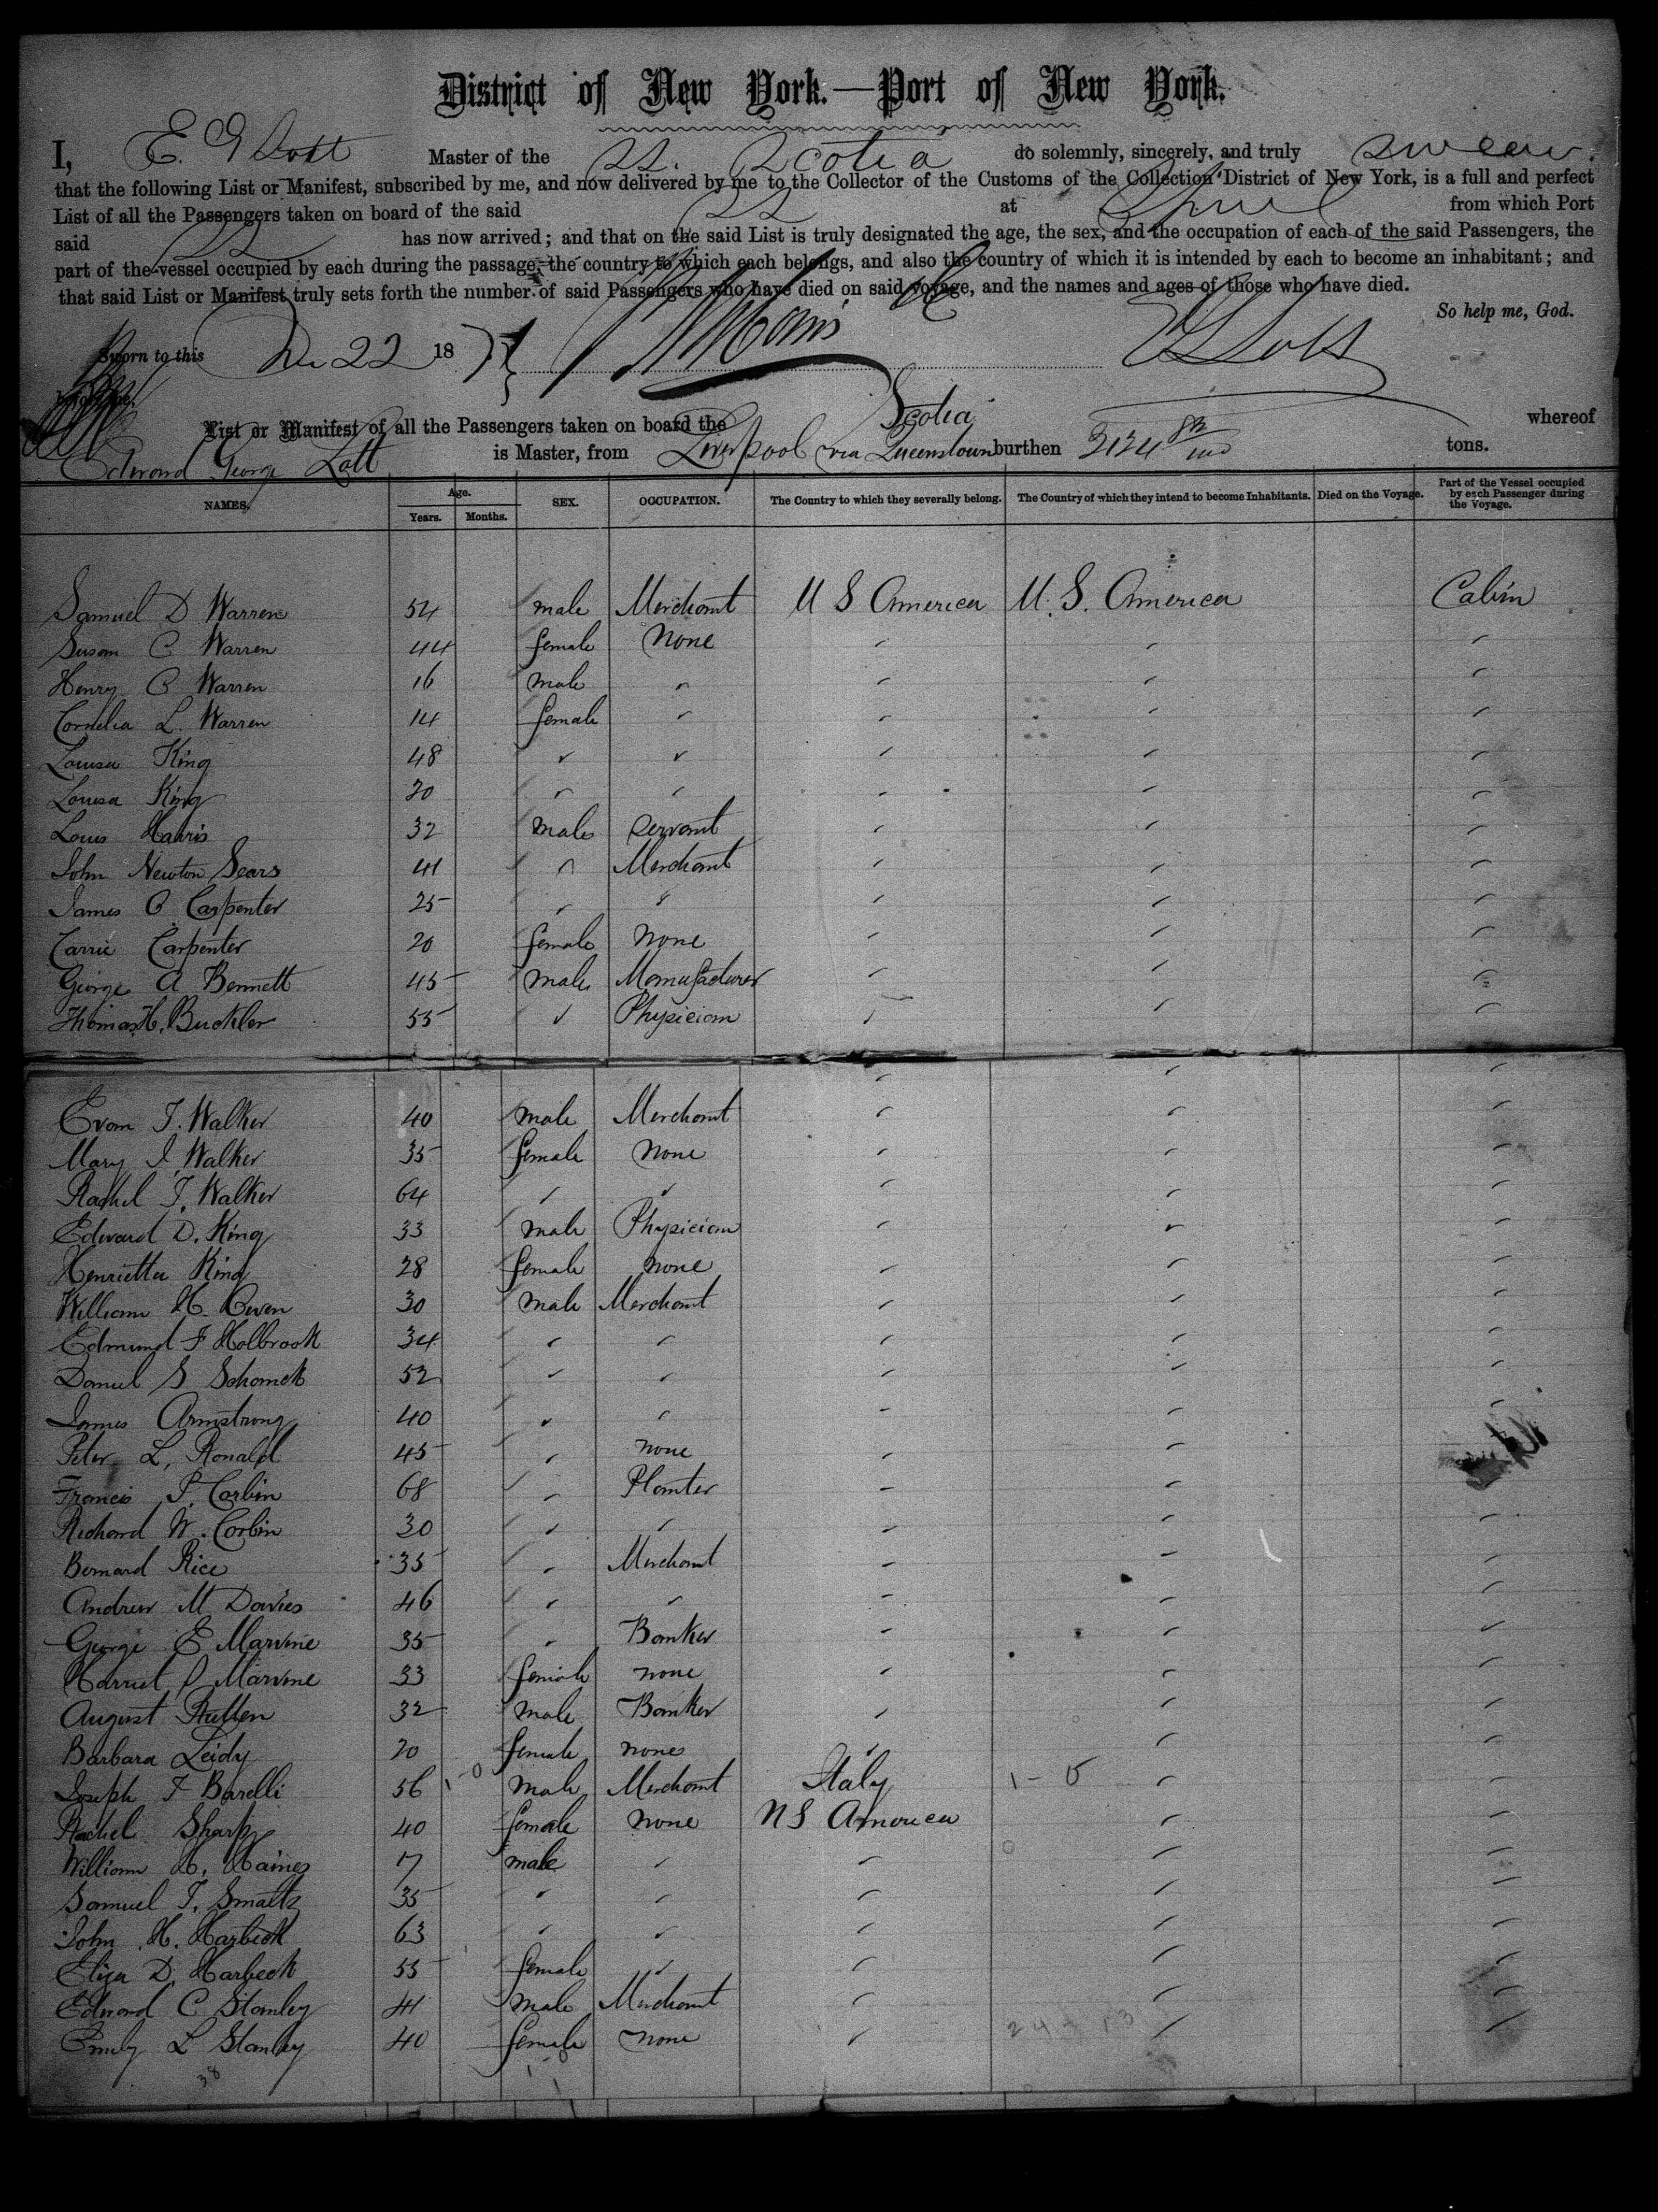 District of New York.—Port of New York.
I, E. G Lott Master of the SS. Scotia do solemnly, sincerely, and truly swear.
that the following List or Manifest, subscribed by me, and now delivered by me to the Collector of the Customs of the Collection District of New York, is a full and perfect
List of all the Passengers taken on board of the said SS at from which Port
said SS has now arrived; and that on the said List is truly designated the age, the sex, and the occupation of each of the said Passengers, the
part of the vessel occupied by each during the passage, the country to which each belongs, and also the country of which it is intended by each to become an inhabitant; and
that said List or Manifest truly sets forth the number of said Passengers who have died on said voyage, and the names and ages of those who have died.
So help me, God.
Sworn to this 22 18
before me,
List or Manifest of all the Passengers taken on board the Scotia whereof
Edward George Lott is Master, from Liverpool via Queenstown burthen tons.
NAMES. Age. Years. Months. SEX. OCCUPATION. The Country to which they severally belong. The Country of which they intend to become Inhabitants. Died on the Voyage. Part of the Vessel occupied by each Passenger during the Voyage.
Samuel D Warren 54 male Merchant U S America U. S. America Cabin
Susan C Warren 44 female None " " "
Henry C Warren 16 male " " " "
Cornelia L. Warren 14 female " " " "
Louisa King 48 " " " " "
Louisa King 20 " " " " "
Louis Harris 32 male Servant " " "
John Newton Sears 41 " Merchant " " "
James C Carpenter 25 " " " " "
Carrie Carpenter 20 female None " " "
George A Bennett 45 male Manufacturer " " "
Thomas H. Buckler 55 " Physician " " "
Evan T. Walker 40 male Merchant " " "
Mary I. Walker 35 female None " " "
Rachel T. Walker 64 " " " " "
Edward D. King 33 male Physician " " "
Henrietta King 28 female none " " "
William H. Owen 30 male Merchant " " "
Edmund F Holbrook 34 " " " " "
Daniel S Schanck 52 " " " " "
James Armstrong 40 " " " " "
Peter L. Ronald 45 " none " " "
Francis P. Corbin 68 " Planter " " "
Richard W. Corbin 30 " " " " "
Bernard Rice 35 " Merchant " " "
Andrew M Davies 46 " " " " "
George E Marvine 35 " Banker " " "
Harriet P Marvine 33 female none " " "
August Rutten 32 male Banker " " "
Barbara Leidy 20 female none " " "
Joseph F Barelli 56 male Merchant Italy " "
Rachel Sharp 40 female none U S America " "
William H. Haines 17 male " " " "
Samuel T. Smaltz 35 " " " " "
John H. Harbeck 63 " " " " "
Eliza D. Harbeck 55 female " " " "
Edward C Stanley 41 male Merchant " " "
Emily L Stanley 40 female none " " "
38